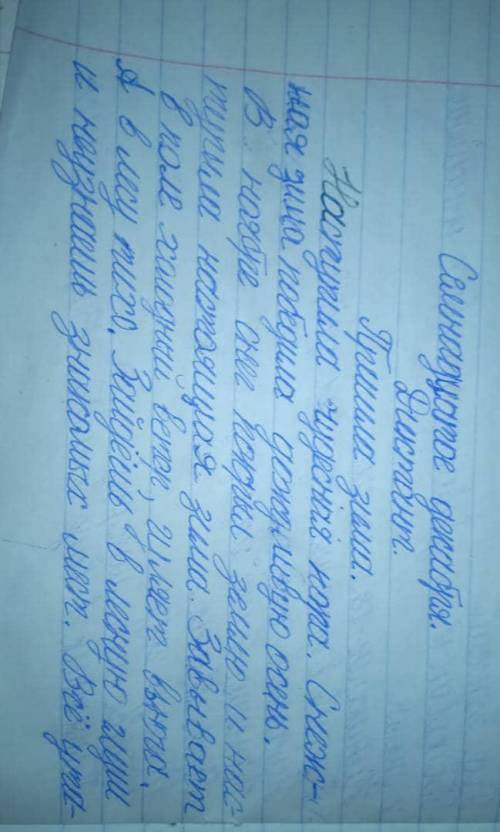 Семнадцатое декабря.
Диктант.
Пришла зима.
Наступила чудесная пора. Снеж-
ная зима победила дождливую осень.
В ноябре снег покрыл землю и нас-
тупила настоящая зима. Завывает
в поле хищный ветер, гуляет вьюга.
А в лесу тихо. Зайдёшь в лесную глушь
и не узнаешь знакомых мест. Всё ута-